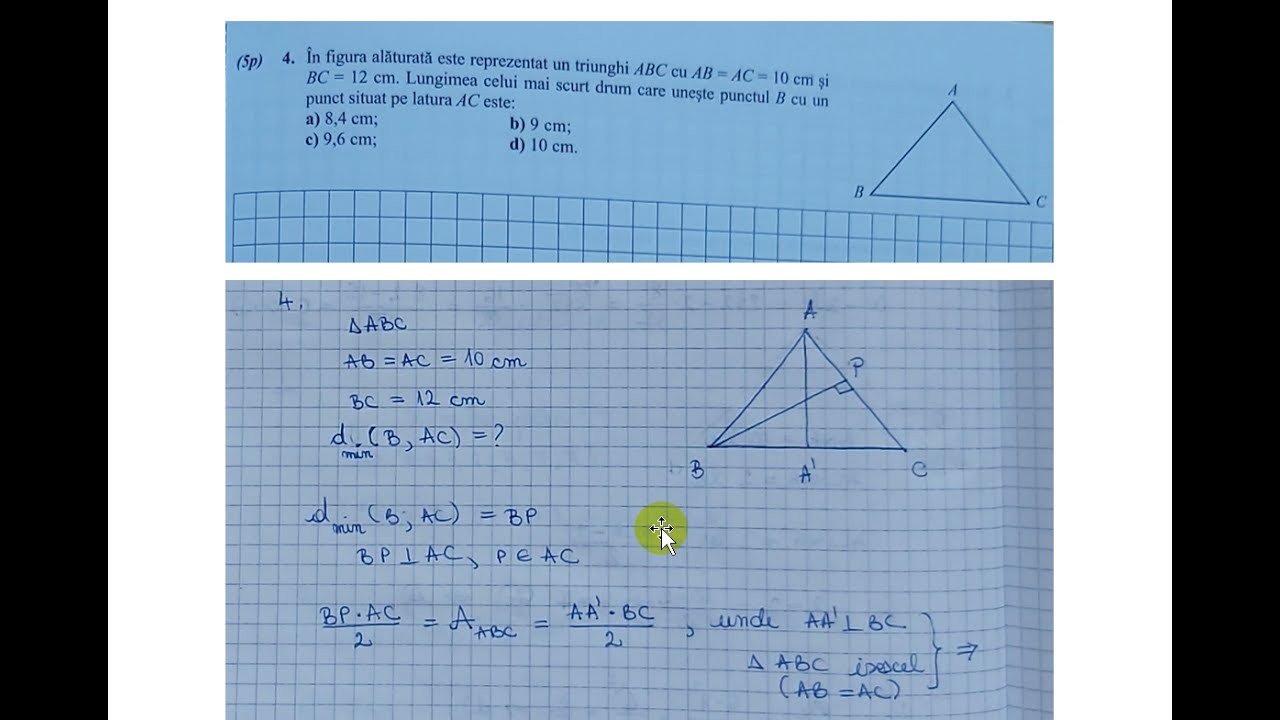 (5p) 4. În figura alăturată este reprezentat un triunghi ABC cu AB = AC = 10 cm și
BC = 12 cm. Lungimea celui mai scurt drum care unește punctul B cu un
punct situat pe latura AC este:
a) 8,4 cm; b) 9 cm;
c) 9,6 cm; d) 10 cm.
A
B
C
4.
Δ ABC
AB = AC = 10 cm
BC = 12 cm
d min (B, AC) = ?
A
P
B
A'
C
d min (B; AC) = BP
BP ⊥ AC, P ∈ AC
BP · AC / 2 = A ABC = AA' · BC / 2 , unde AA' ⊥ BC } ⇒
Δ ABC isoscel
(AB = AC)